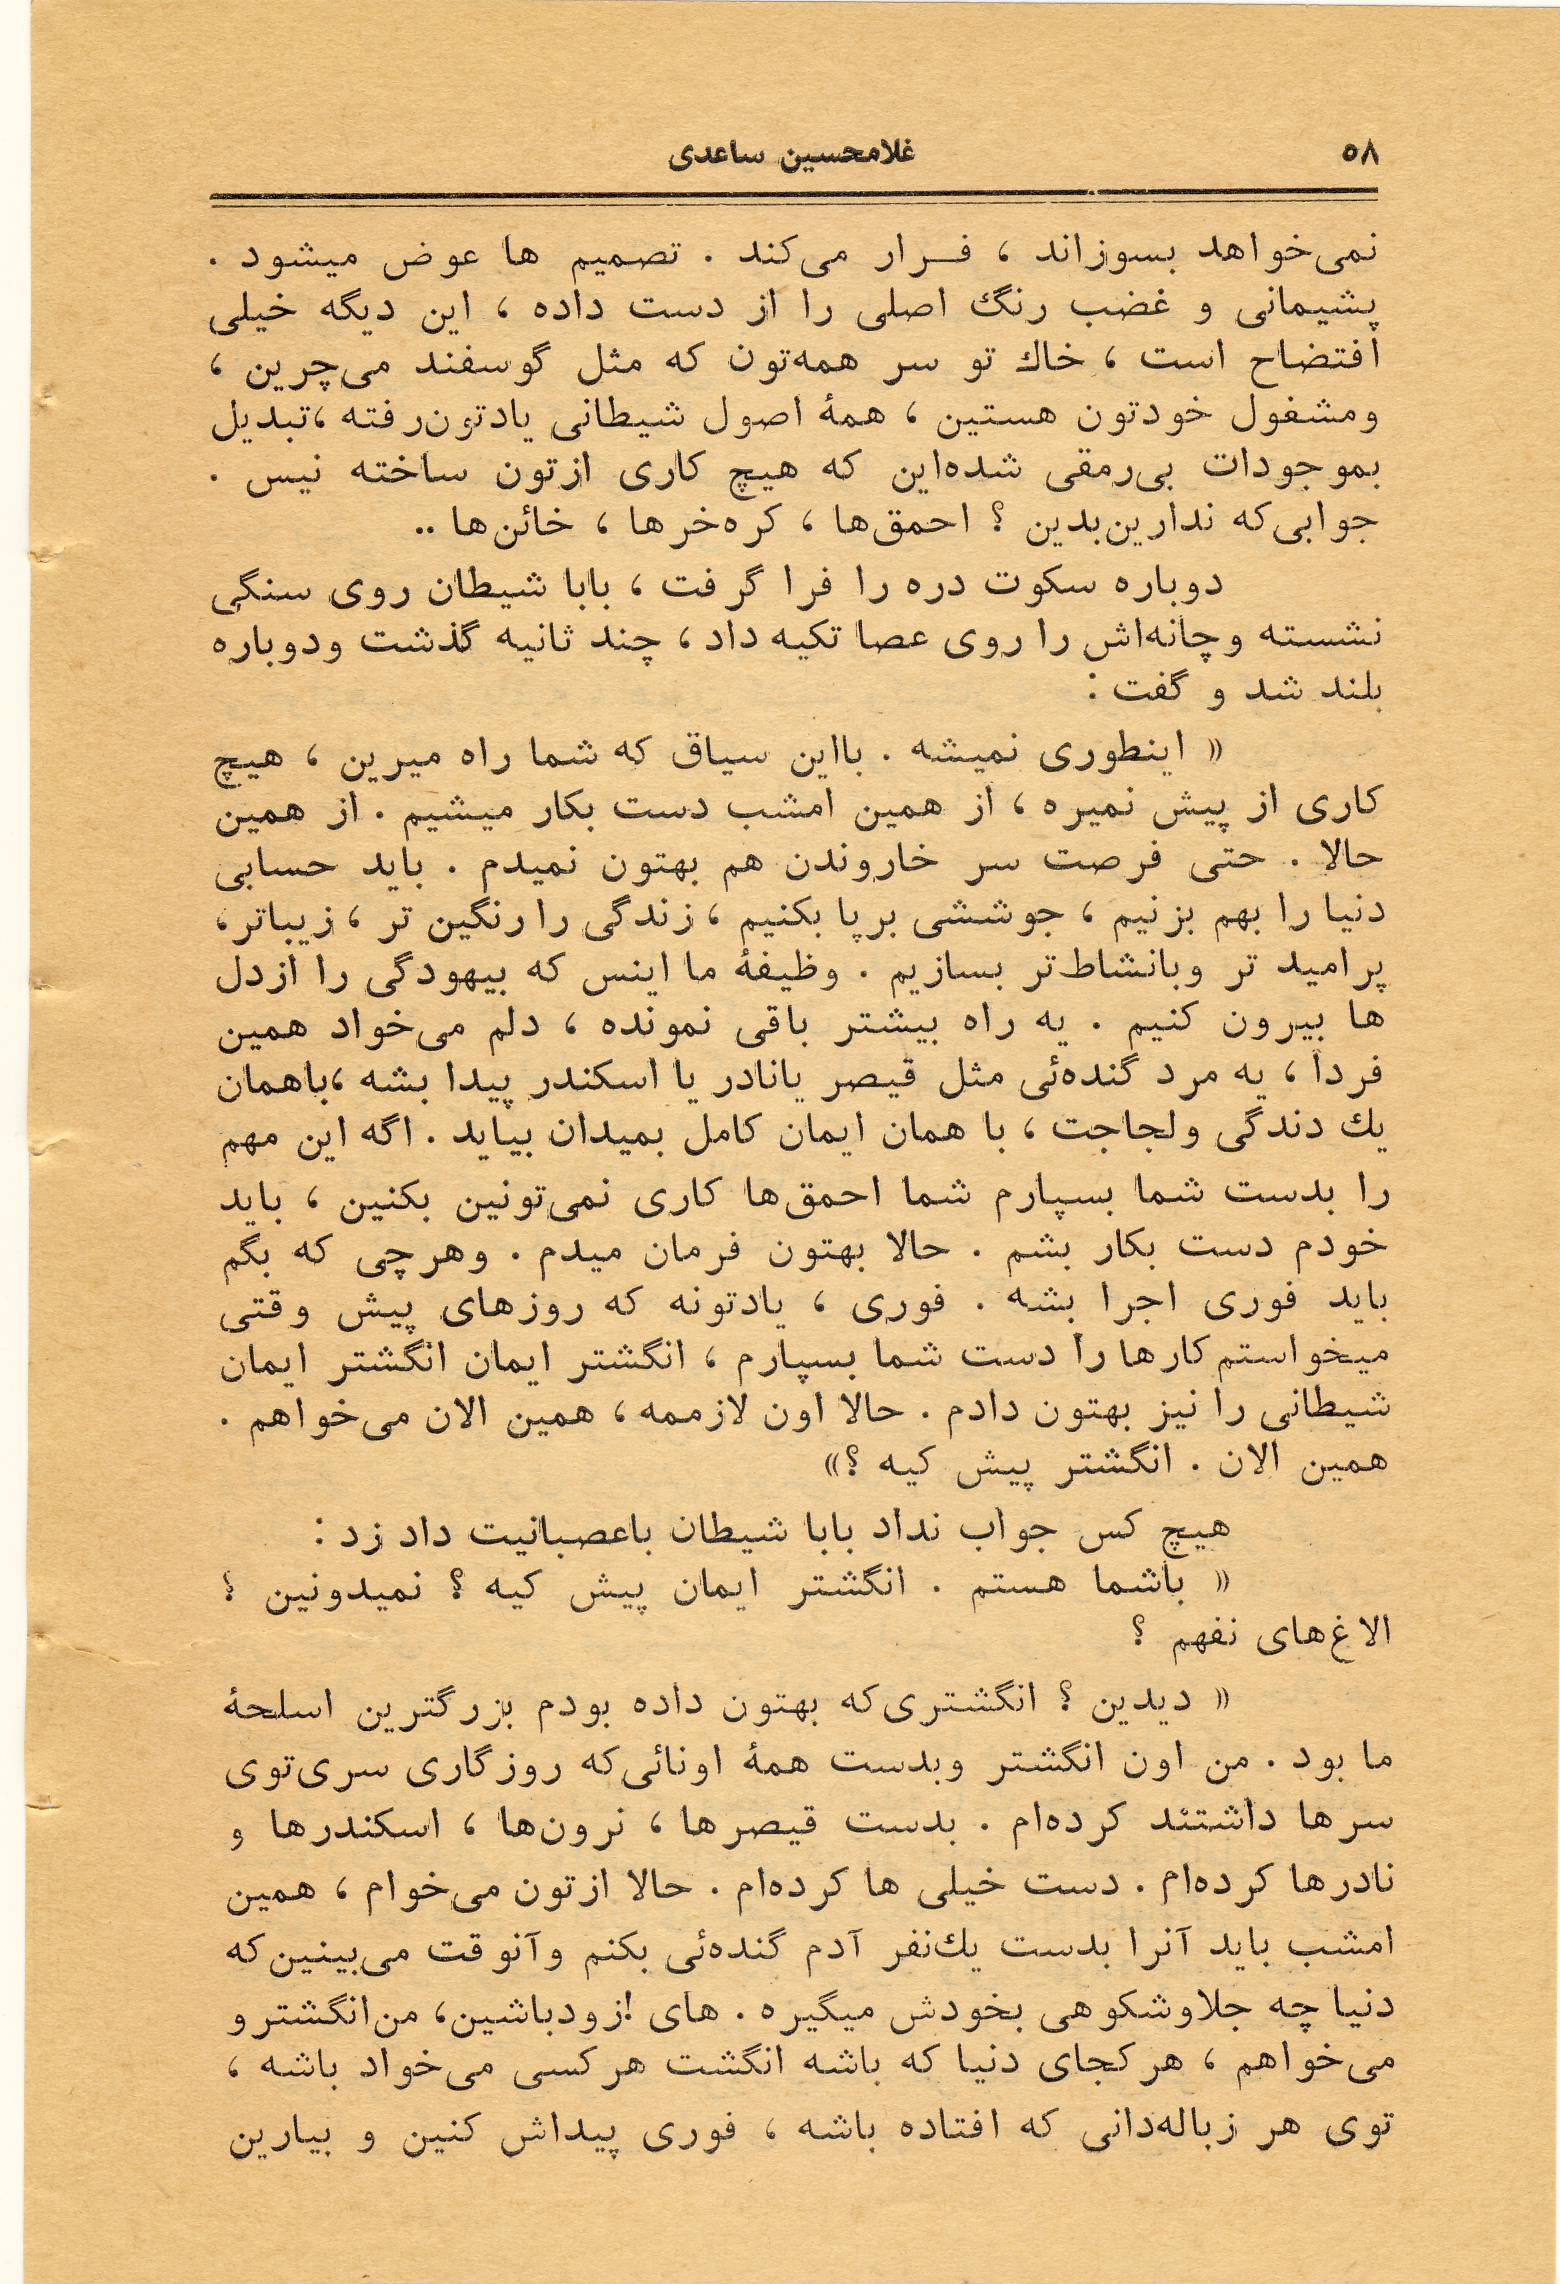 ۵۸
غلامحسین ساعدی
نمی‌خواهد بسوزاند ، فــرار می‌کند . تصمیم ها عوض میشود .
پشیمانی و غضب رنگ اصلی را از دست داده ، این دیگه خیلی
افتضاح است ، خاك تو سر همه‌تون که مثل گوسفند می‌چرین ،
ومشغول خودتون هستین ، همهٔ اصول شیطانی یادتون‌رفته ،تبدیل
بموجودات بی‌رمقی شده‌این که هیچ کاری ازتون ساخته نیس .
جوابی‌که ندارین‌بدین ؟ احمق‌ها ، کره‌خرها ، خائن‌ها ..
دوباره سکوت دره را فرا گرفت ، بابا شیطان روی سنگی
نشسته وچانه‌اش را روی عصا تکیه داد ، چند ثانیه گذشت ودوباره
بلند شد و گفت :
« اینطوری نمیشه . بااین سیاق که شما راه میرین ، هیچ
کاری از پیش نمیره ، از همین امشب دست بکار میشیم . از همین
حالا . حتی فرصت سر خاروندن هم بهتون نمیدم . باید حسابی
دنیا را بهم بزنیم ، جوششی برپا بکنیم ، زندگی را رنگین تر ، زیباتر،
پرامید تر وبانشاط‌تر بسازیم . وظیفهٔ ما اینس که بیهودگی را ازدل
ها بیرون کنیم . یه راه بیشتر باقی نمونده ، دلم می‌خواد همین
فردا ، یه مرد گنده‌ئی مثل قیصر یانادر یا اسکندر پیدا بشه ،باهمان
یك دندگی ولجاجت ، با همان ایمان کامل بمیدان بیاید . اگه این مهم
را بدست شما بسپارم شما احمق‌ها کاری نمی‌تونین بکنین ، باید
خودم دست بکار بشم . حالا بهتون فرمان میدم . وهرچی که بگم
باید فوری اجرا بشه . فوری ، یادتونه که روزهای پیش وقتی
میخواستم کارها را دست شما بسپارم ، انگشتر ایمان انگشتر ایمان
شیطانی را نیز بهتون دادم . حالا اون لازممه ، همین الان می‌خواهم .
همین الان . انگشتر پیش کیه ؟»
هیچ کس جواب نداد بابا شیطان باعصبانیت داد زد :
« باشما هستم . انگشتر ایمان پیش کیه ؟ نمیدونین ؟
الاغ‌های نفهم ؟
« دیدین ؟ انگشتری‌که بهتون داده بودم بزرگترین اسلحهٔ
ما بود . من اون انگشتر وبدست همهٔ اونائی‌که روزگاری سری‌توی
سرها داشتند کرده‌ام . بدست قیصرها ، نرون‌ها ، اسکندرها و
نادرها کرده‌ام . دست خیلی ها کرده‌ام . حالا ازتون می‌خوام ، همین
امشب باید آنرا بدست یك‌نفر آدم گنده‌ئی بکنم وآنوقت می‌بینین‌که
دنیا چه جلاوشکوهی بخودش میگیره . های !زودباشین، من‌انگشترو
می‌خواهم ، هرکجای دنیا که باشه انگشت هرکسی می‌خواد باشه ،
توی هر زباله‌دانی که افتاده باشه ، فوری پیداش کنین و بیارین